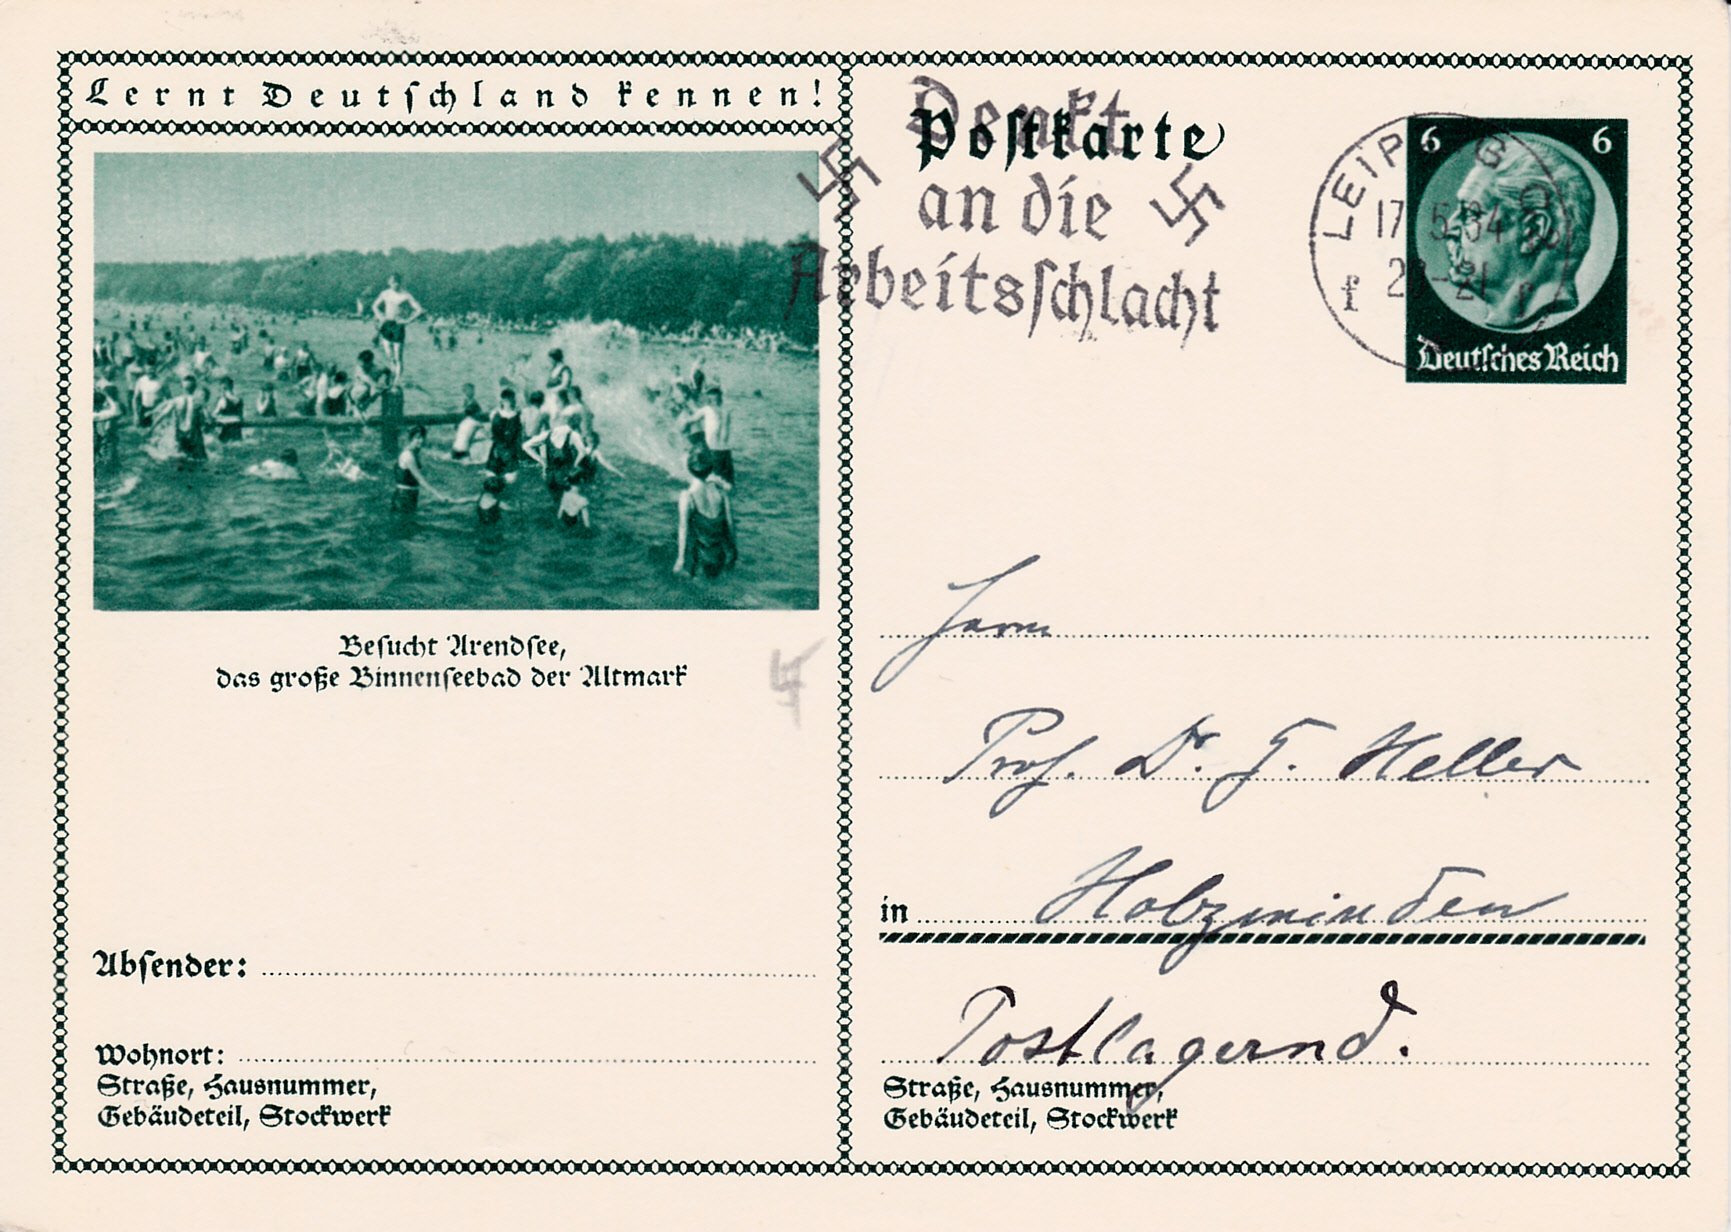 Lernt Deutschland kennen!
Besucht Arendsee,
das große Binnenseebad der Altmark
Absender:
Wohnort:
Straße, Hausnummer,
Gebäudeteil, Stockwerk
Postkarte
Denkt
an die
Arbeitsschlacht
LEIPZIG
17.5.34
20-21
f
6 6
Deutsches Reich
Herrn
Prof. Dr. G. Heller
in Holzminden
Postlagernd.
Straße, Hausnummer,
Gebäudeteil, Stockwerk